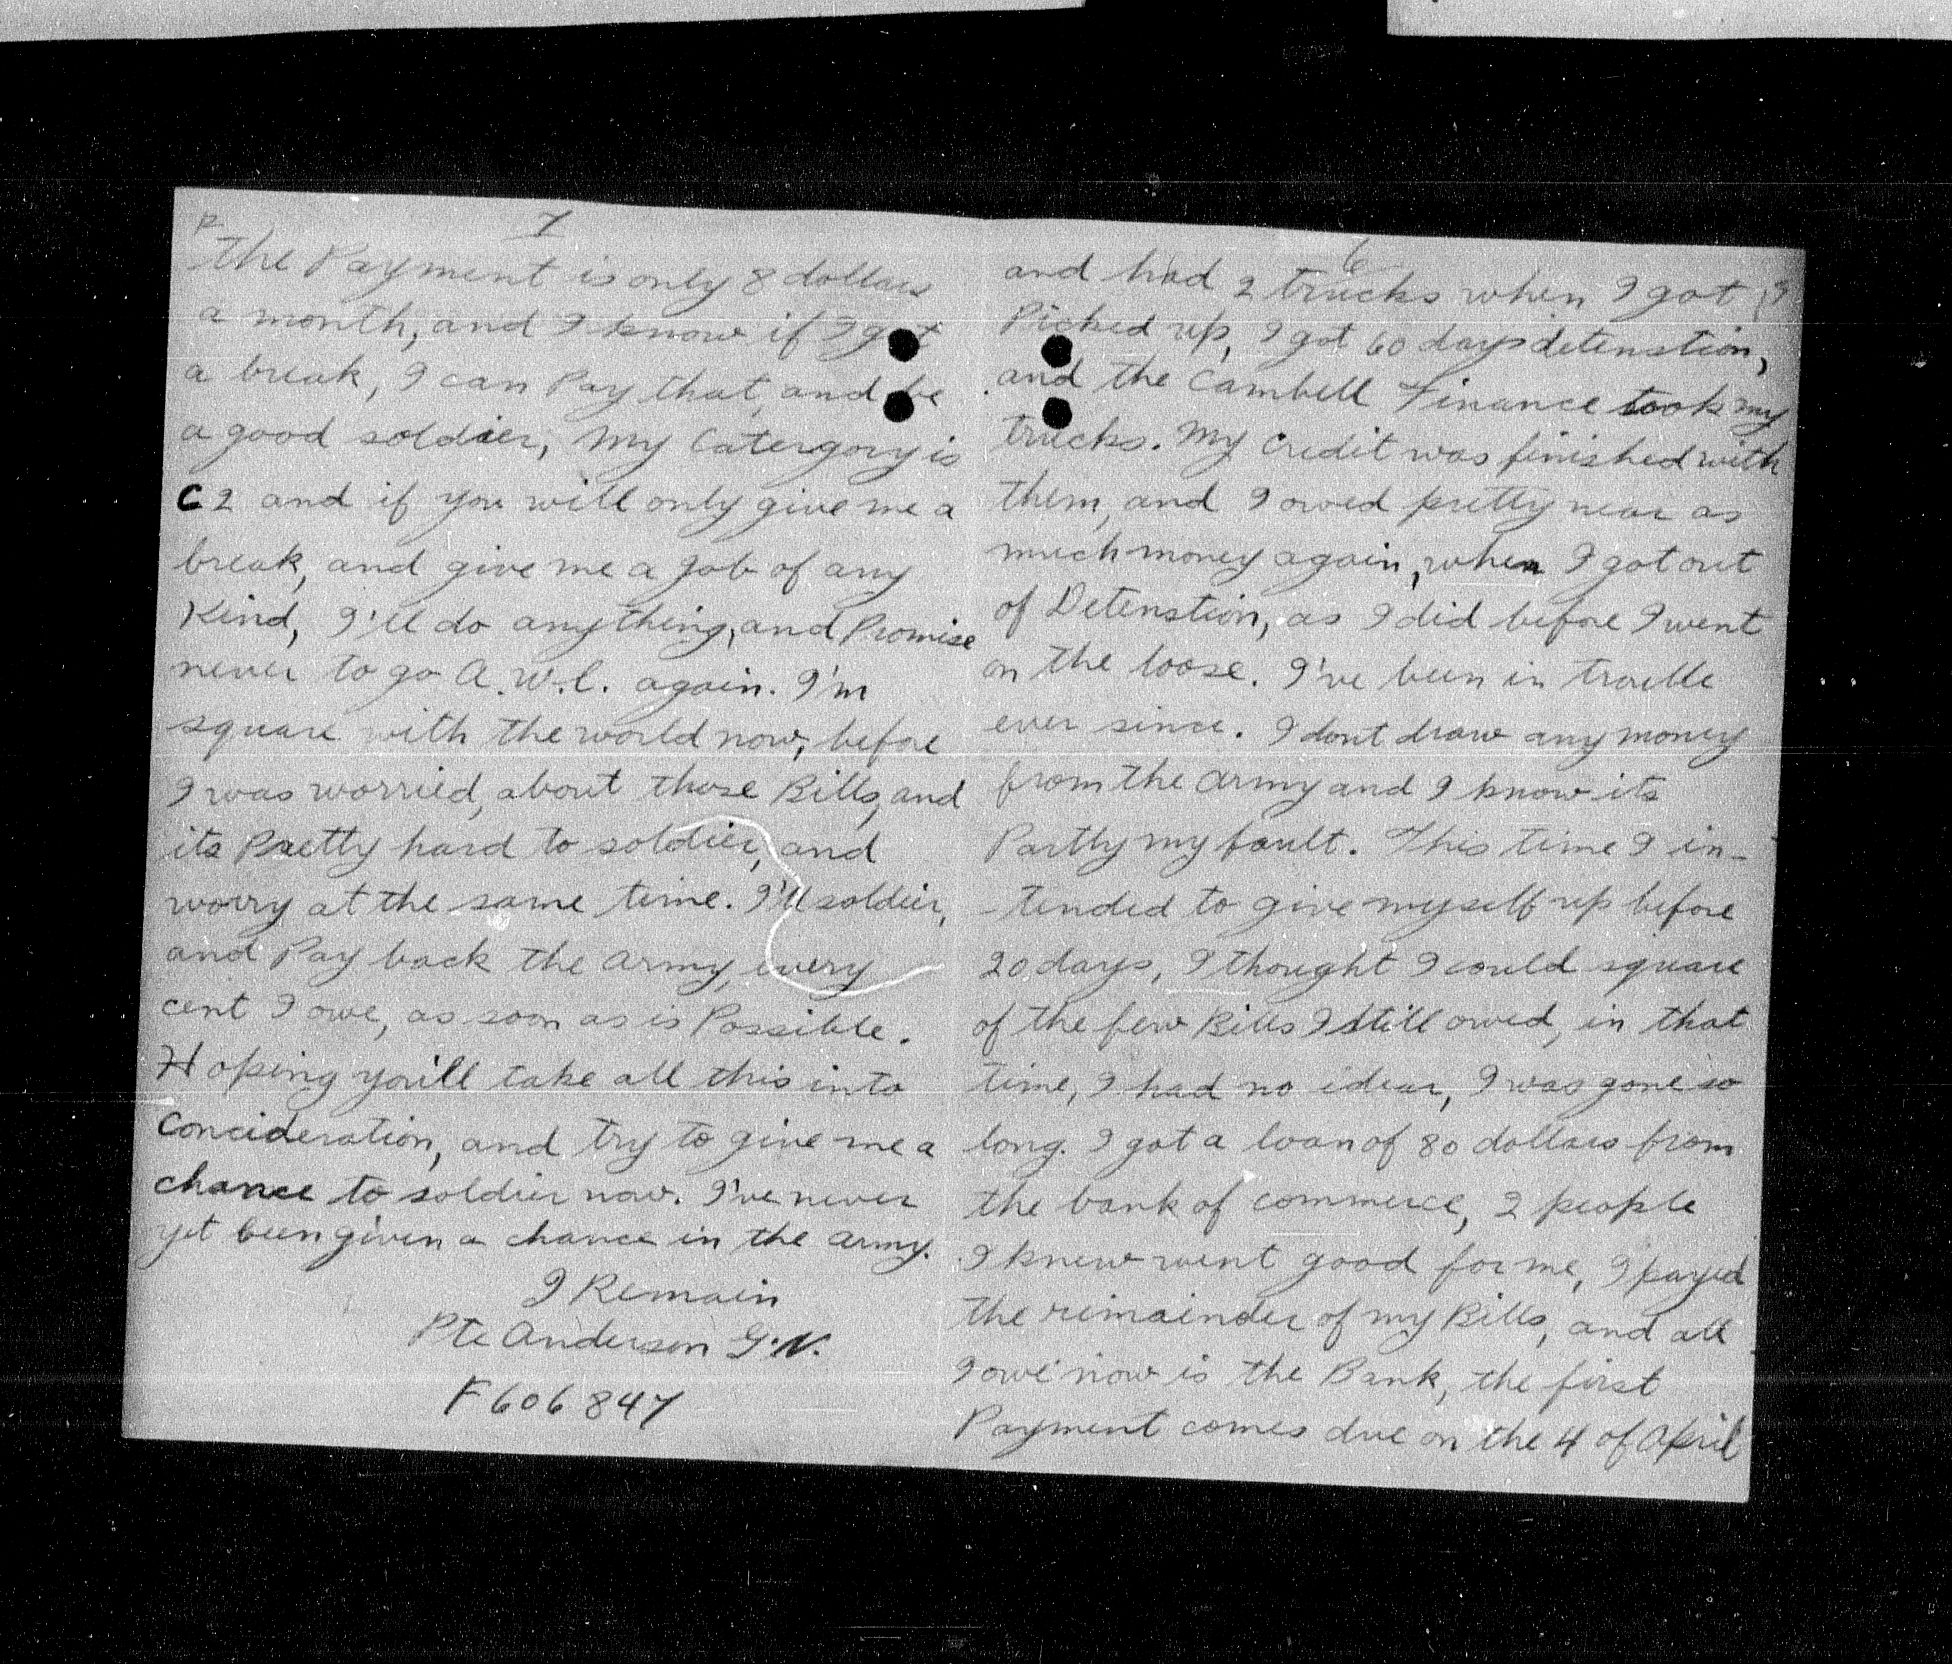 7
the Payment is only 8 dollars
a month, and I know if I got
a break, I can Pay that, and be
a good soldier, My Catergory is
C2 and if you will only give me a
break, and give me a job of any
Kind, I'll do anything, and Promise
never to go A.W.L. again. I'm
square with the world now, before
I was worried, about those Bills, and
its Pretty hard to soldier, and
worry at the same time. I'll soldier,
and Pay back the army, every
cent I owe, as soon as is Possible.
Hoping you'll take all this into
Concideration, and try to give me a
chance to soldier now. I've never
yet been given a chance in the army.
I Remain
Pte Anderson G.V.
F606847
6
and had 2 trucks when I got
Picked up, I got 60 days detenstion,
and the Cambell Finance took my
trucks. My Credit was finished with
them, and I owed pretty near as
much money again, when I got out
of Detenstion, as I did before I went
on the loose. I've been in trouble
ever since. I dont draw any money
from the army and I know its
Partly my fault. This time I in-
-tended to give myself up before
20 days, I thought I could square
of the few Bills I still owed, in that
time, I had no idear, I was gone so
long. I got a loan of 80 dollars from
the bank of commerce, 2 people
I knew went good for me, I payed
the remainder of my Bills, and all
I owe now is the Bank, the first
Payment comes due on the 4 of April